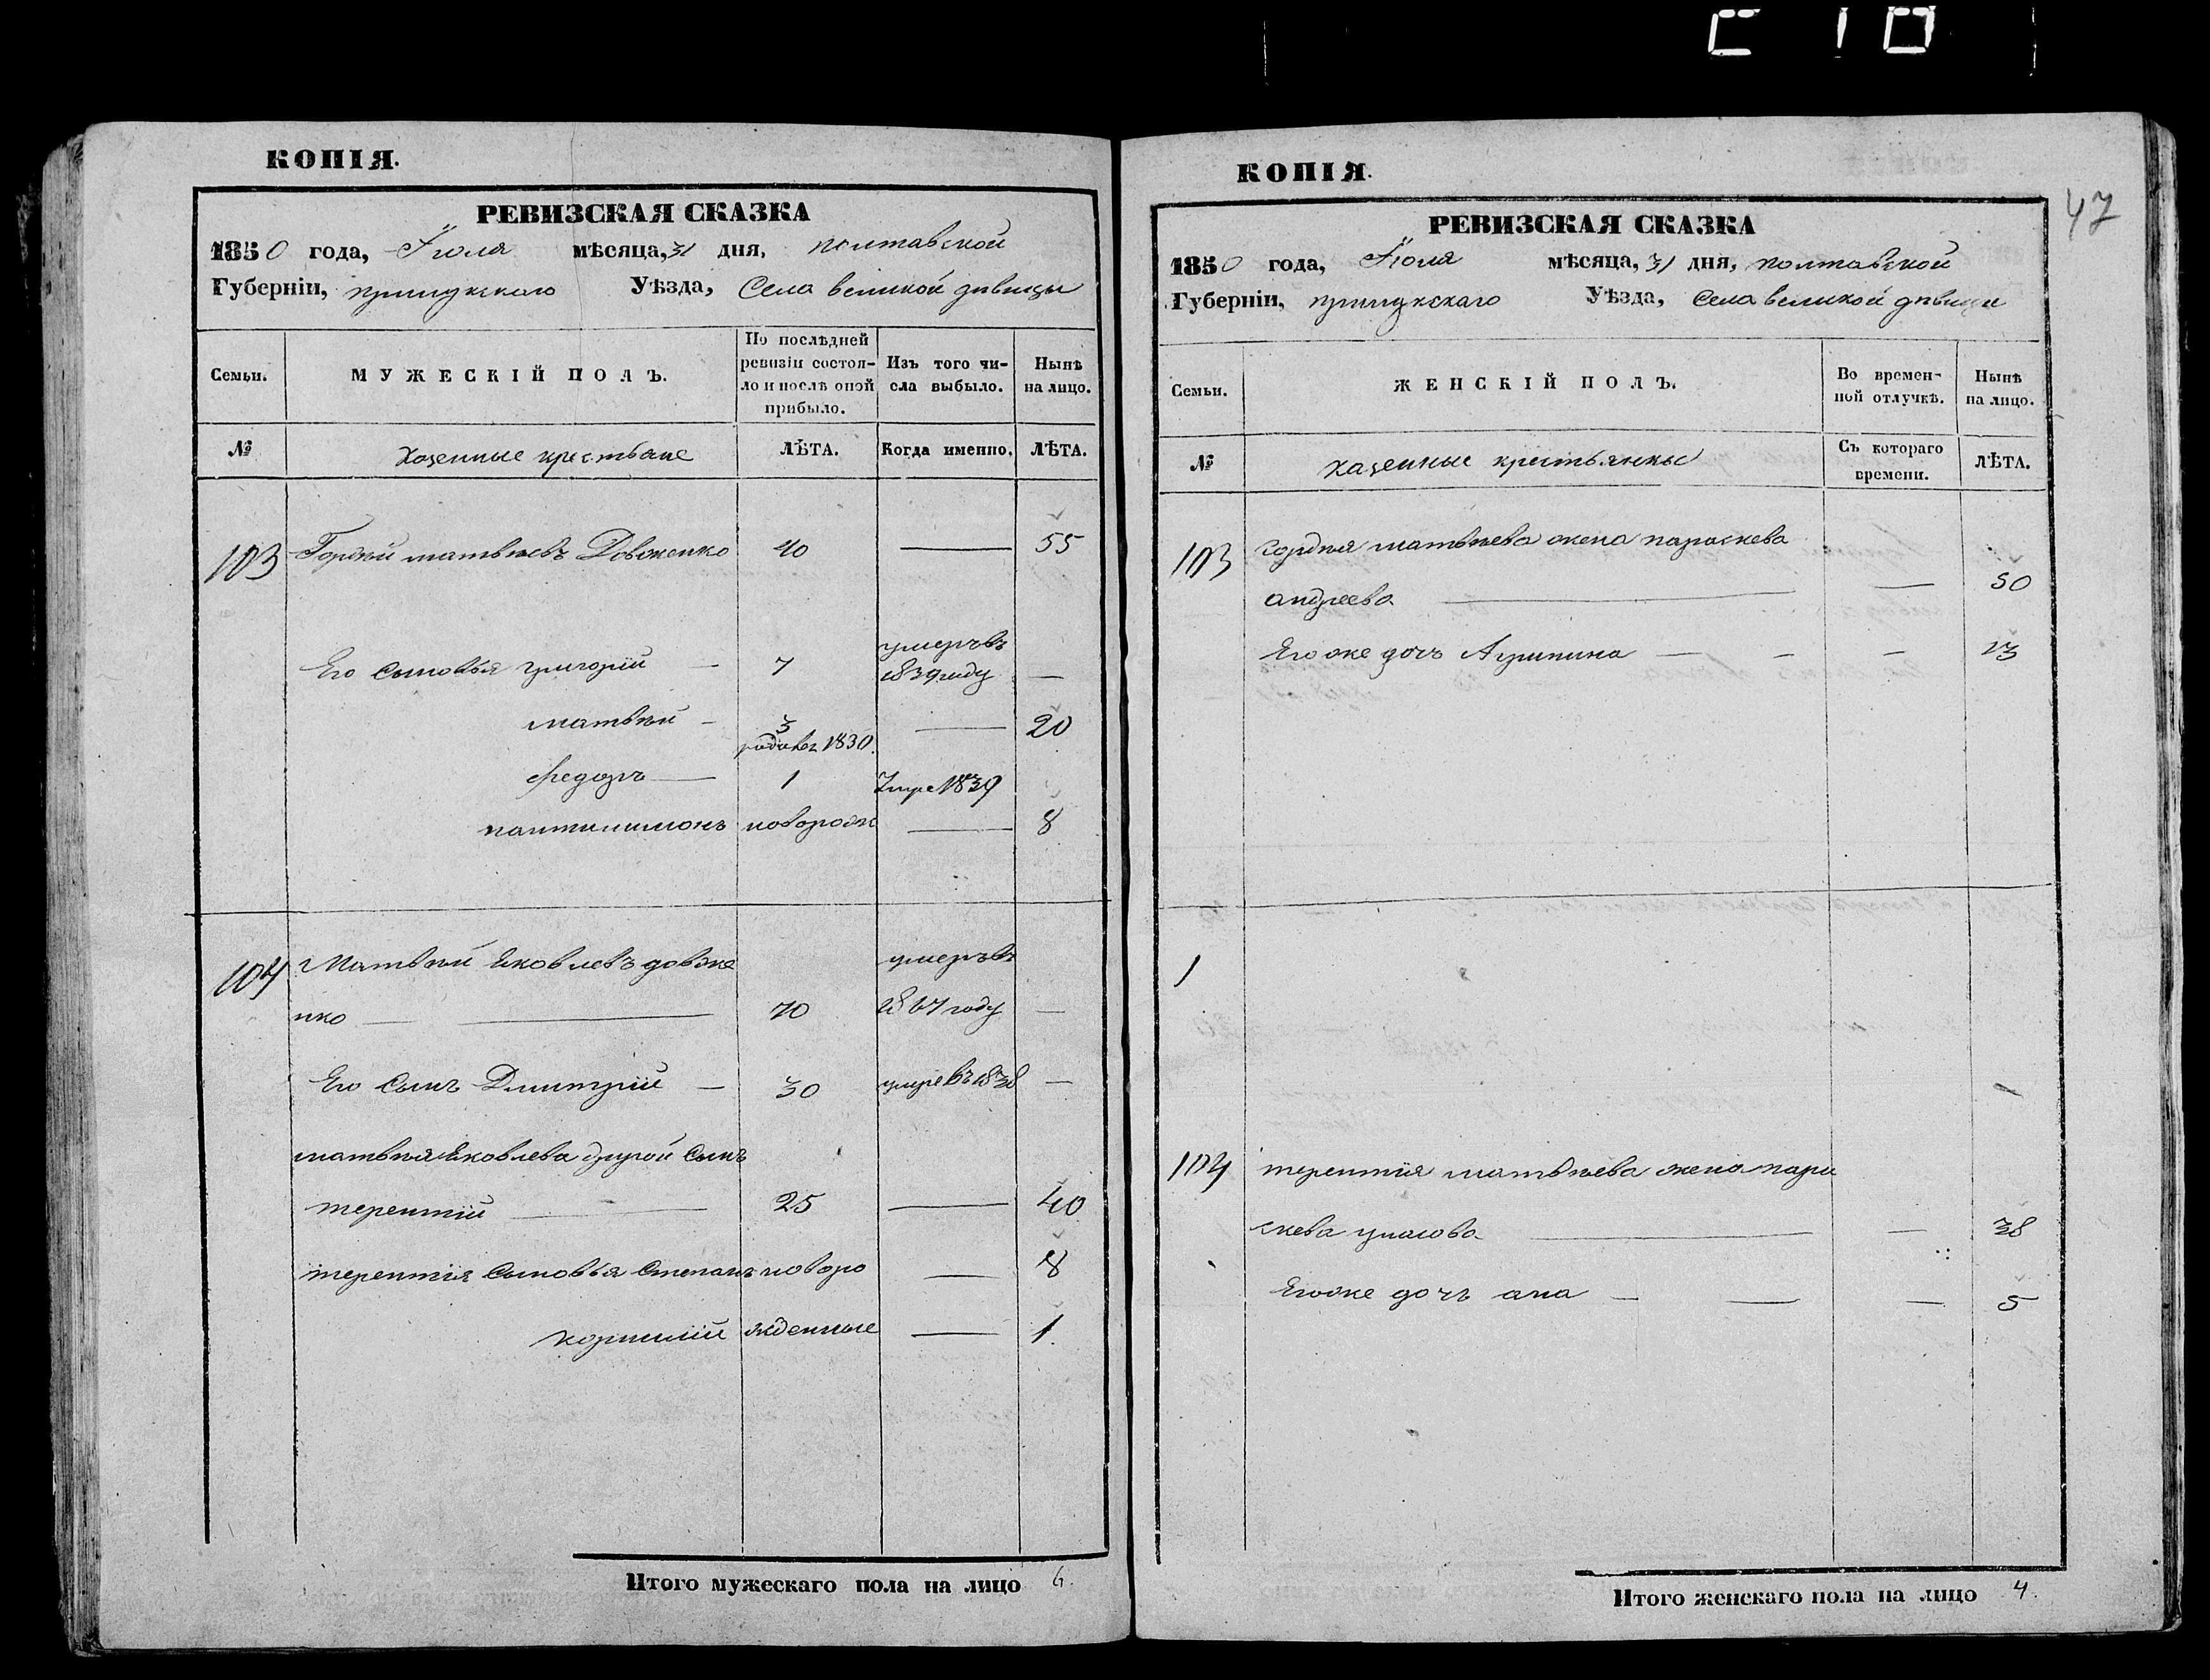 КОПІЯ.
РЕВИЗСКАЯ СКАЗКА
1850 года, Іюля мѣсяца, 31 дня, полтавской
Губерніи, прилукскаго Уѣзда, Села великой дѣвицы
Семьи.
МУЖЕСКІЙ ПОЛЪ.
По послѣдней ревизіи состояло и послѣ оной прибыло.
Изъ того числа выбыло.
Нынѣ на лицо.
№
казенные крестьяне
ЛѢТА.
Когда именно.
ЛѢТА.
103 Гордѣй матвѣевъ Довженко 40 — 55
умеръ въ
Его сыновья григорій — 7 1839 году —
матвѣй — 3 — 20
родивъ 1830.
федоръ — 1 Умре 1839
пантилимонъ новорож — 8
104 Матвѣй Яковлевъ довже умеръ въ
нко — 70 году —
Его сынъ Дмитрій — 30 умре въ 1838 —
матвѣя Яковлева другой сынъ
терентій — 25 — 40
терентія сыновья Степанъ новоро — 8
корнилій жденные — 1.
Итого мужескаго пола на лицо 6.
КОПІЯ.
47
РЕВИЗСКАЯ СКАЗКА
1850 года, Іюля мѣсяца, 31 дня, полтавской
Губерніи, прилукскаго Уѣзда, Села великой дѣвицы
Семьи.
ЖЕНСКІЙ ПОЛЪ.
Во временной отлучкѣ.
Нынѣ на лицо.
№
казенные крестьянки
Съ котораго времени.
ЛѢТА.
103 гордѣя матвѣева жена параскева
андреева — — 50
Его же дочь Агрипина — — — 13
1
104 терентія матвѣева жена пара
скева — — 38
Его же дочь ана — — — 5
Итого женскаго пола на лицо 4.